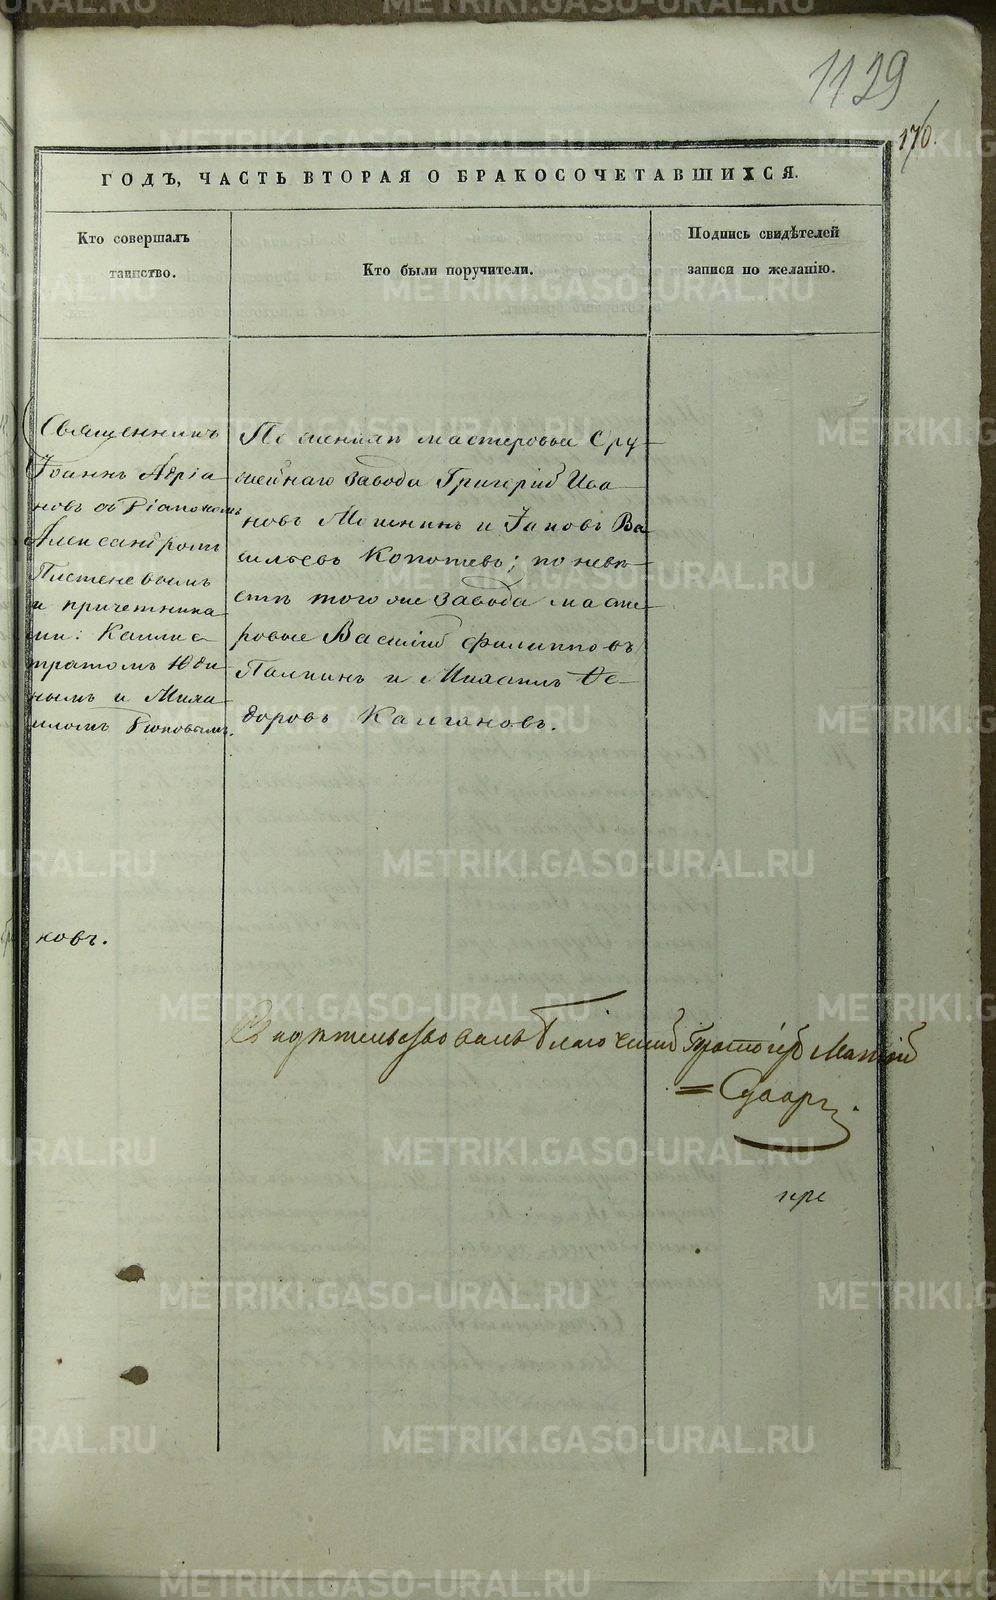 1129
170.
ГОДЪ, ЧАСТЬ ВТОРАЯ О БРАКОСОЧЕТАВШИХСЯ.
Кто совершалъ
таинство.
Кто были поручители.
Подпись свидѣтелей
записи по желанію.
Священникъ
Іоаннъ Адріа
новъ съ Діакономъ
Александромъ
и причетника
ми: Каллис
тратомъ Юди
нымъ и Миха
иломъ Поповымъ.
По женихѣ мастеровые Ору
жейнаго завода Григорій Ива
новъ Мошкинъ и Іаковъ Ва
сильевъ Копотевъ; по невѣ
стѣ того же завода масте
ровые Василій Филипповъ
Палкинъ и Михаилъ Ѳе
доровъ Калгановъ.
новъ.
Свидѣтельствовалъ Благочинный Протоіерей Матѳій
METRIKI.GASO-URAL.RU